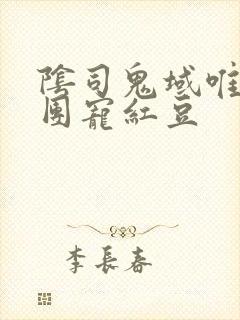 陰司鬼域唯
團寵紅豆
李長春